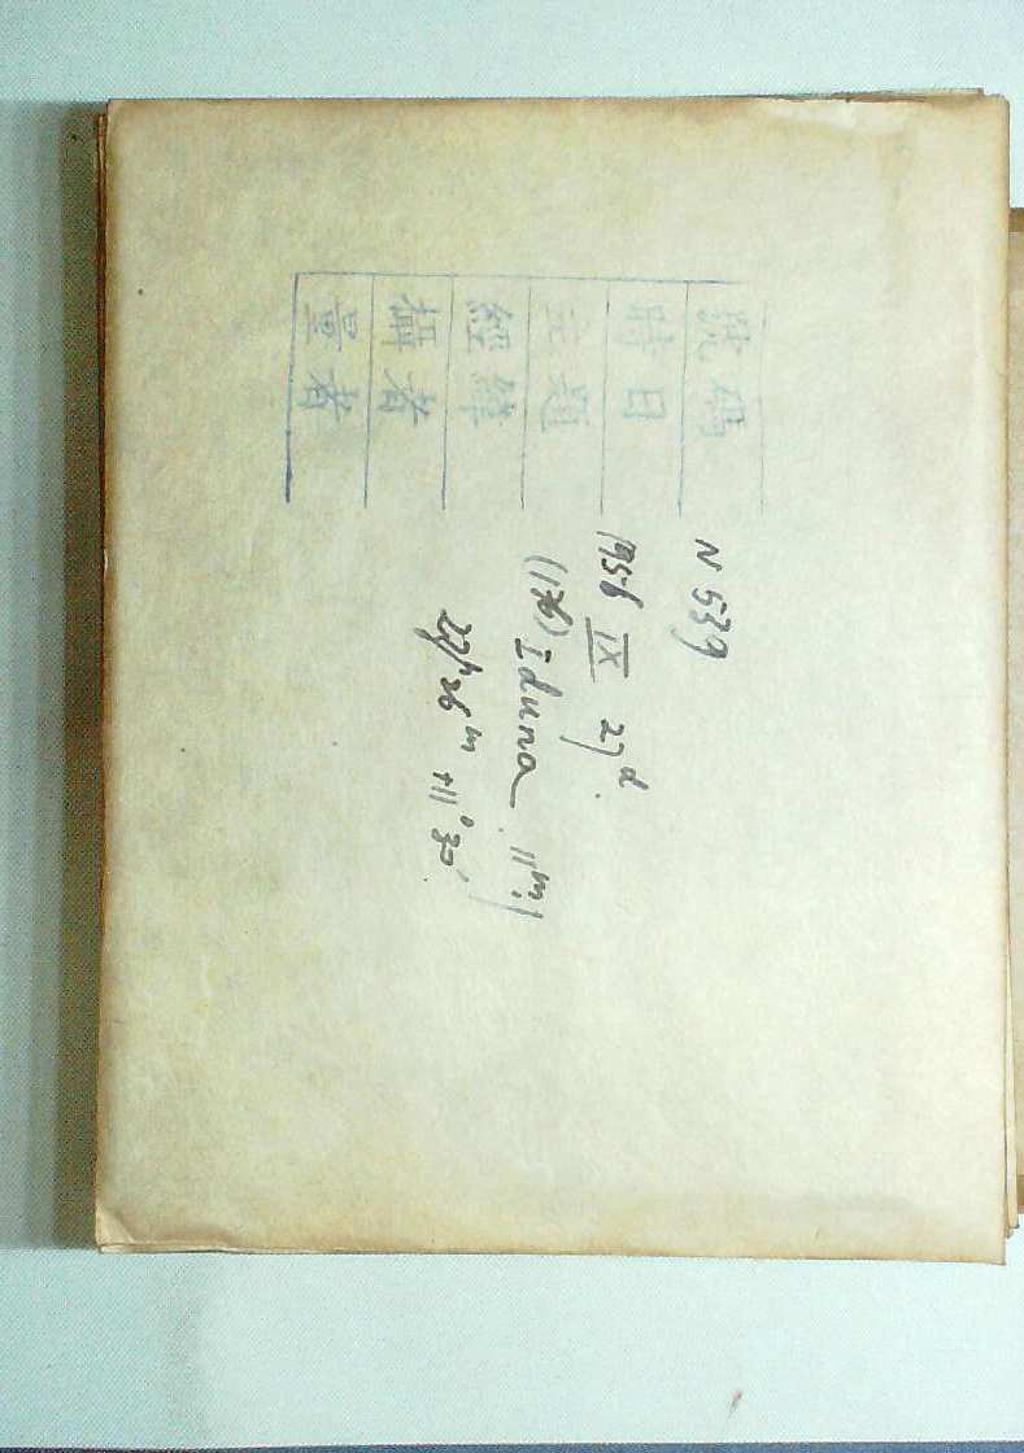 號碼 N 539
時日 1956 IX 27d.
主題 (176) Iduna 11m.1
經緯 22h26m +11°30′
攝者
量者